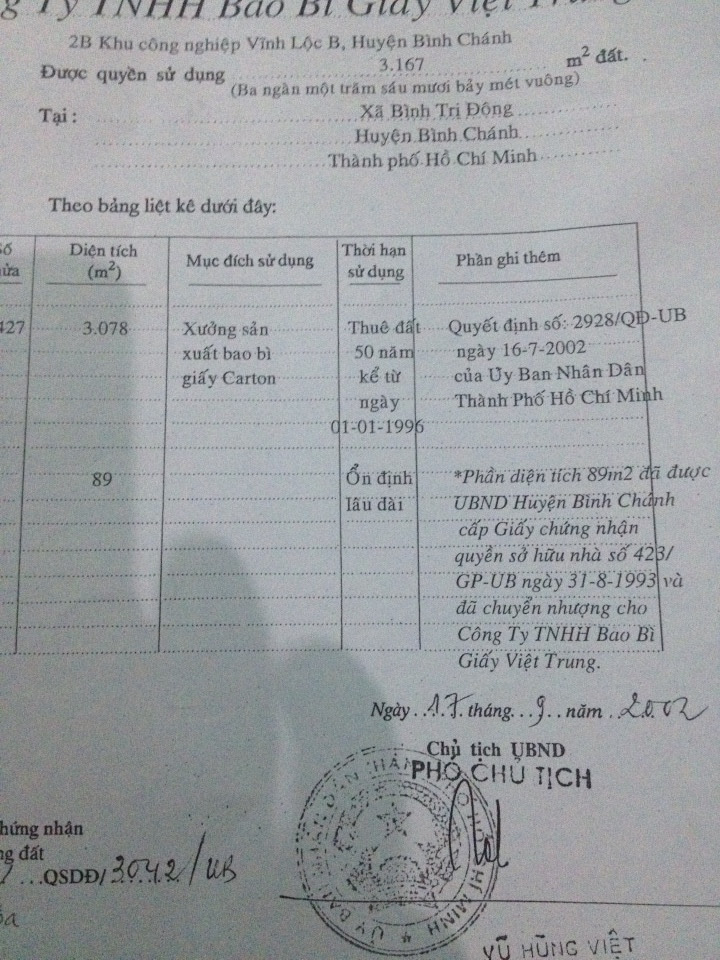 g Ty TNHH Bao Bì Giấy Việt Trung
2B Khu công nghiệp Vĩnh Lộc B, Huyện Bình Chánh
Được quyền sử dụng 3.167 m² đất.
(Ba ngàn một trăm sáu mươi bảy mét vuông)
Tại : Xã Bình Trị Đông
Huyện Bình Chánh
Thành phố Hồ Chí Minh
Theo bảng liệt kê dưới đây:
Số Diện tích Mục đích sử dụng Thời hạn Phần ghi thêm
(m²) sử dụng
427 3.078 Xưởng sản Thuê đất Quyết định số: 2928/QĐ-UB
xuất bao bì 50 năm ngày 16-7-2002
giấy Carton kể từ của Ủy Ban Nhân Dân
ngày Thành Phố Hồ Chí Minh
01-01-1996
89 Ổn định *Phần diện tích 89m2 đã được
lâu dài UBND Huyện Bình Chánh
cấp Giấy chứng nhận
quyền sở hữu nhà số 423/
GP-UB ngày 31-8-1993 và
đã chuyển nhượng cho
Công Ty TNHH Bao Bì
Giấy Việt Trung.
Ngày 17 tháng 9 năm 2002
Chủ tịch UBND
PHÓ CHỦ TỊCH
ỦY BAN NHÂN DÂN THÀNH PHỐ HỒ CHÍ MINH
hứng nhận
ng đất
QSDĐ/ 3042/UB
VŨ HÙNG VIỆT